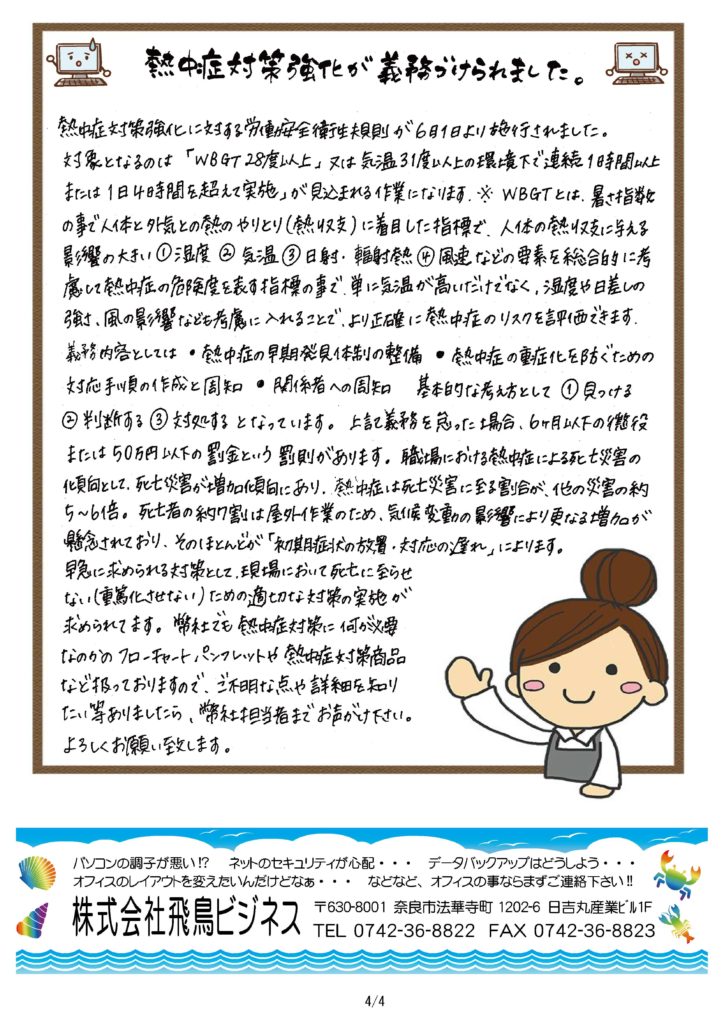 熱中症対策強化が義務づけられました。
熱中症対策強化に対する労働安全衛生規則が6月1日より施行されました。
対象となるのは「WBGT28度以上」又は気温31度以上の環境下で連続1時間以上
または1日4時間を超えて実施」が見込まれる作業になります。※WBGTとは、暑さ指数
の事で人体と外気との熱のやりとり(熱収支)に着目した指標で、人体の熱収支に与える
影響の大きい①湿度 ②気温 ③日射・輻射熱 ④風速などの要素を総合的に考
慮して熱中症の危険度を表す指標の事で、単に気温が高いだけでなく、湿度や日差しの
強さ、風の影響なども考慮に入れることで、より正確に熱中症のリスクを評価できます。
義務内容としては ・熱中症の早期発見体制の整備 ・熱中症の重症化を防ぐための
対応手順の作成と周知 ・関係者への周知 基本的な考え方として ①見つける
②判断する ③対処する となっています。上記義務を怠った場合、6ヶ月以下の懲役
または50万円以下の罰金という罰則があります。職場における熱中症による死亡災害の
傾向として、死亡災害が増加傾向にあり、熱中症は死亡災害に至る割合が、他の災害の約
5~6倍。死亡者の約7割は屋外作業のため、気候変動の影響により更なる増加が
懸念されており、そのほとんどが「初期症状の放置・対応の遅れ」によります。
早急に求められる対策として、現場において死亡に至らせ
ない(重篤化させない)ための適切な対策の実施が
求められてます。弊社でも熱中症対策に何が必要
なのかのフローチャートパンフレットや熱中症対策商品
など扱っておりますので、ご不明な点や詳細を知り
たい等ありましたら、弊社担当者までお声がけ下さい。
よろしくお願い致します。
パソコンの調子が悪い!? ネットのセキュリティが心配・・・ データバックアップはどうしよう・・・
オフィスのレイアウトを変えたいんだけどなぁ・・・ などなど、オフィスの事ならまずご連絡下さい!!
株式会社飛鳥ビジネス 〒630-8001 奈良市法華寺町 1202-6 日吉丸産業ビル1F
TEL 0742-36-8822 FAX 0742-36-8823
4/4